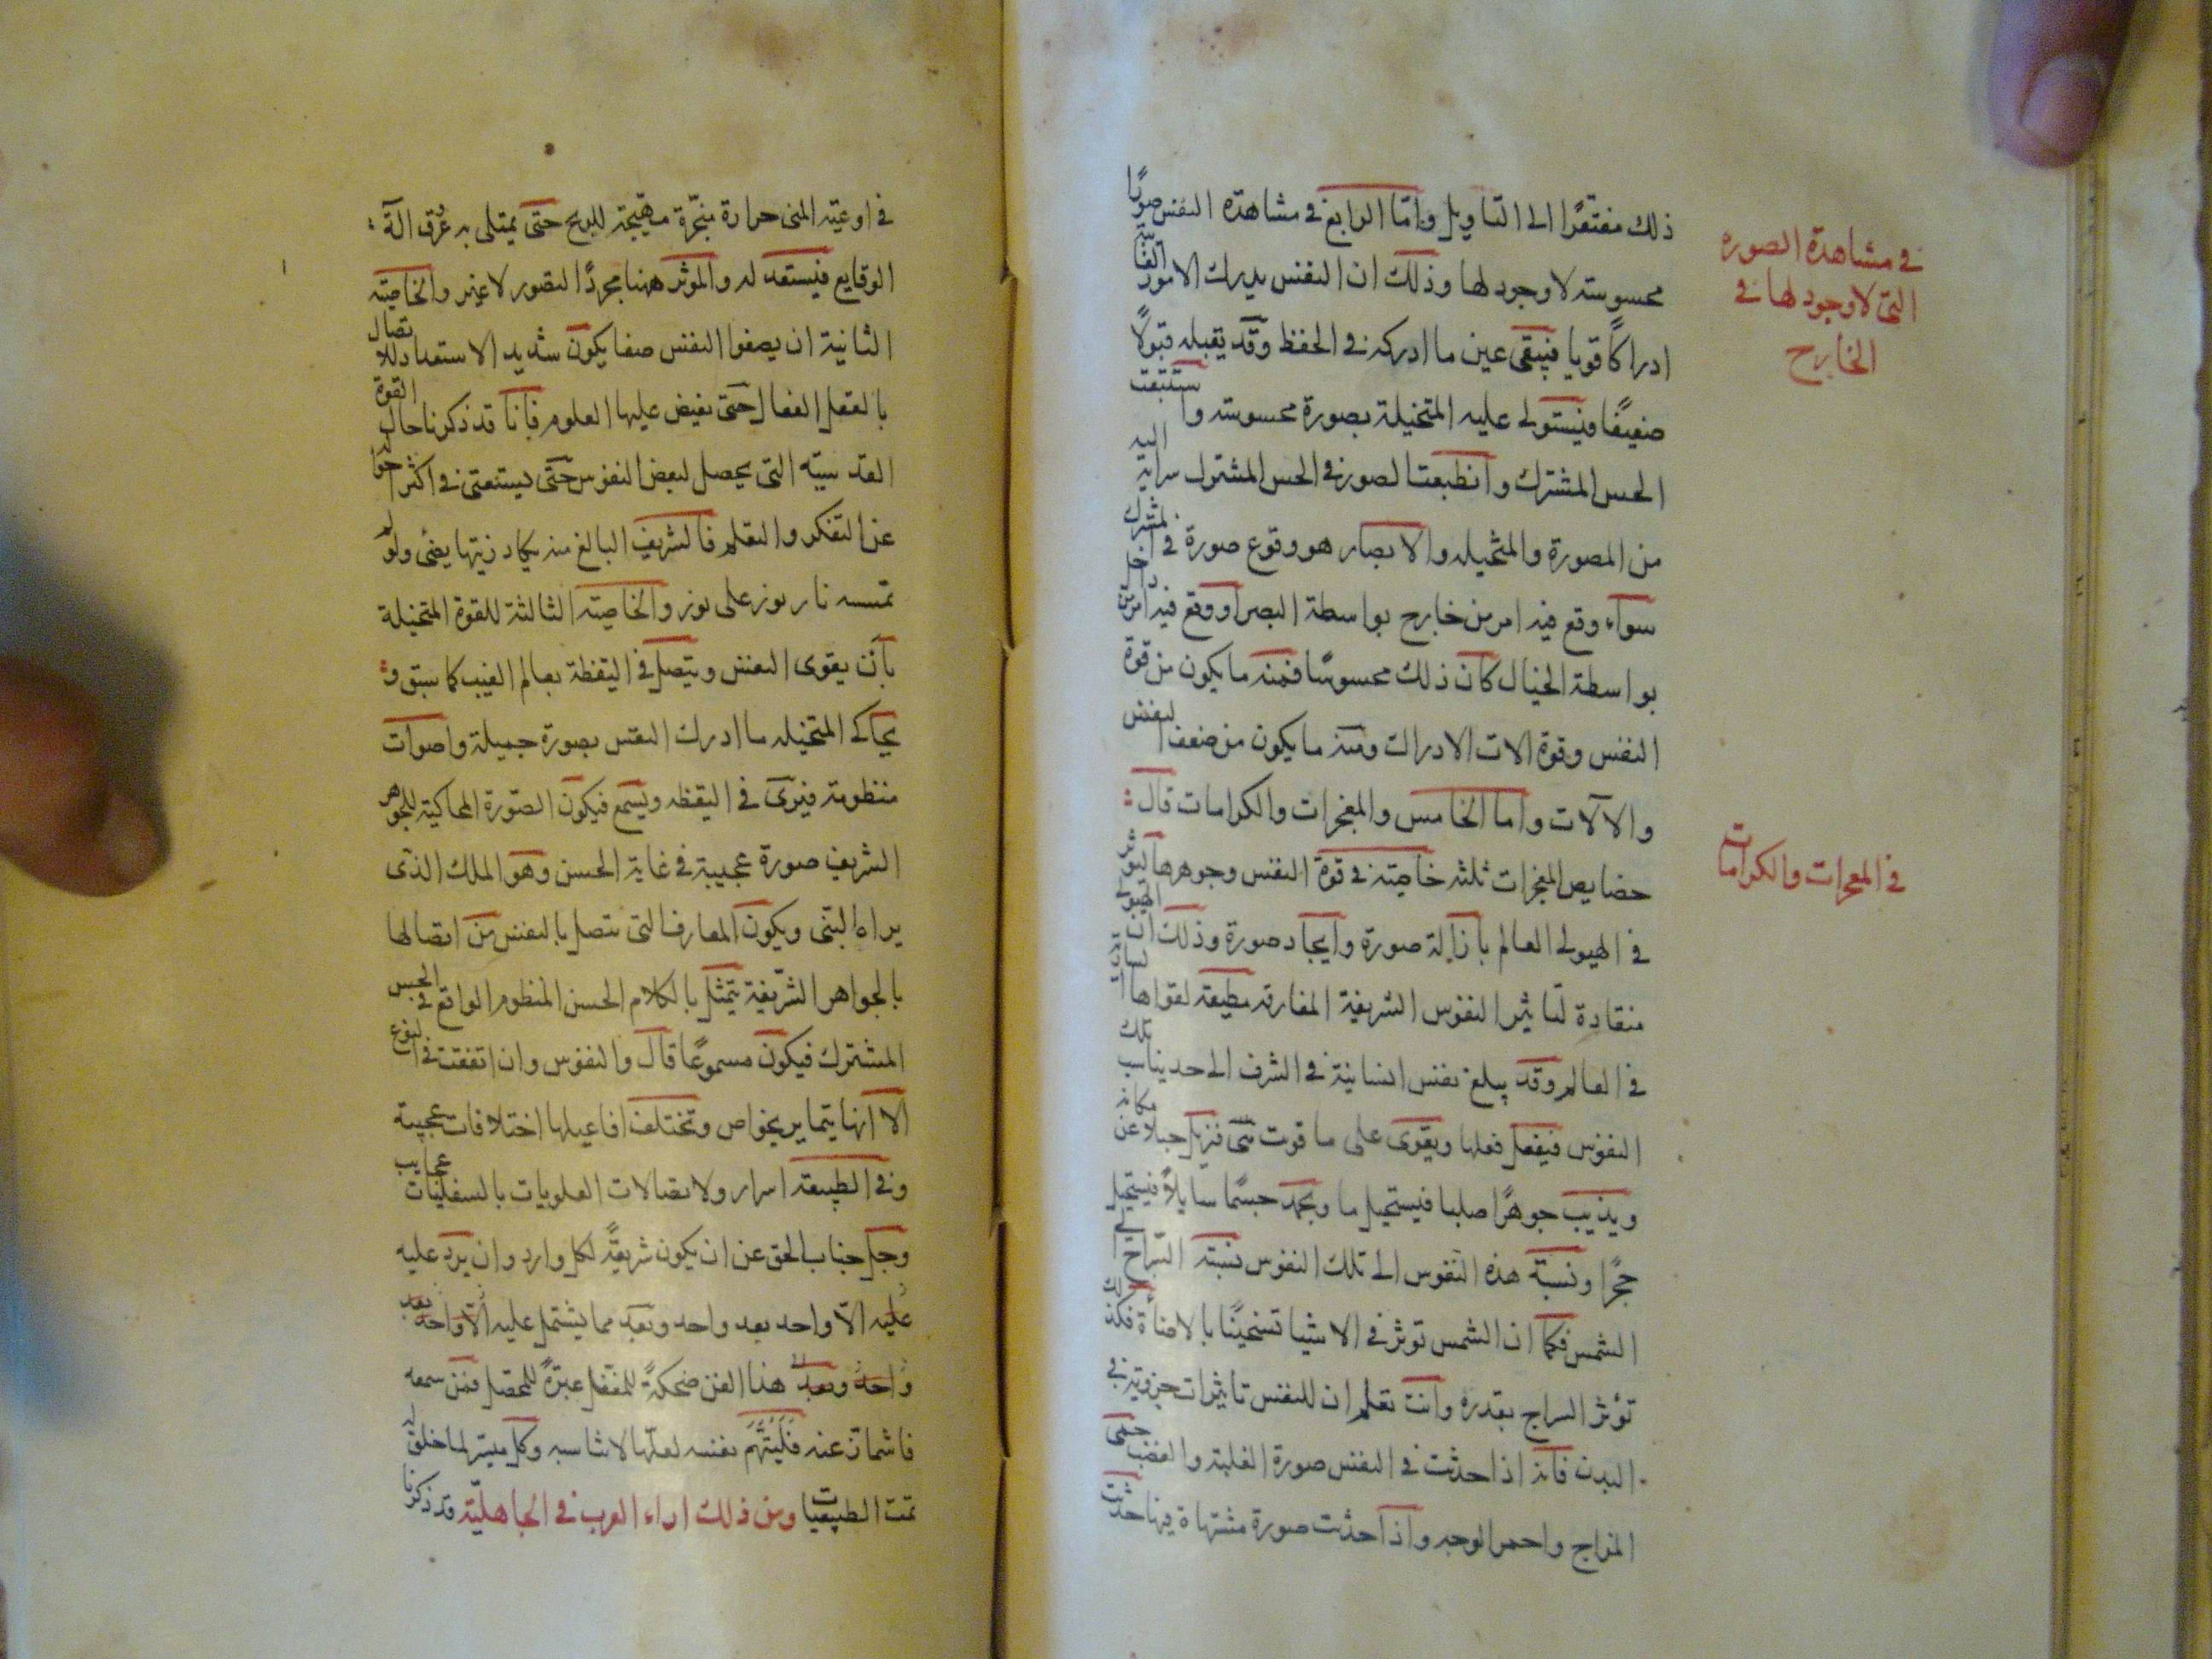 في مشاهدة الصوره
التى لا وجود لها في
الخارج
ذلك مفتقرًا الى التاويل وامّا الرابع في مشاهدة النفس صورًا
محسوسته لا وجود لها وذلك ان النفس يدرك الامور الغائبة
ادراكًا قويا فيبقى عين ما ادركه في الحفظ وقد يقبله قبولًا
ضعيفًا فيستولى عليه المتخيلة بصورة محسوسته واستتبعت
الحس المشترك وانطبعت الصورة في الحس المشترك سراية اليه
من المصورة والمتخيله والابصار هو وقوع صورة في المشترك
سواء وقع فيه امر من خارج بواسطة البصر او وقع فيه امر من داخل
بواسطة الخيال كان ذلك محسوسًا فمنه ما يكون من قوة
النفس وقوة الات الادراك ومنه ما يكون من ضعف النفس
والآلات واما الخامس والمعجزات والكرامات قال
في المعجزات والكرامات
خصايص المعجزات ثلثه خاصيته في قوة النفس وجوهرها ليوثر
في الهيولى العالم بازالة صورة وايجاد صورة وذلك ان الهيولى
منقادة لتاثير النفوس الشريفة المفارقه مطيعة لقواها السارية
في العالم وقد يبلغ نفس انسانية في الشرف الى حد يناسب تلك
النفوس فيفعل فعلها ويقوى على ما قوت هى فتزيل جبلا عن مكانه
ويذيب جوهرًا صلبا فيستحيل ما ويجمد جسمًا سايلاً فيستحيل
حجرًا ونسبة هذه النفوس الى تلك النفوس كنسبة السراج الى
الشمس فكما ان الشمس توثر في الاشيا تسخينًا بالاضاءة فكذلك
تؤثر السراج بقدره وانت تعلم ان للنفس تاثيرات جزوية في
البدن فانه اذا حدثت في النفس صورة الغلبة والغضب حمى
المزاج واحمر الوجه واذا حدثت صورة مشتهاة فيها حدثت
في اوعية المنى حرارة مبخّرة مهيجة للريح حتى يمتلى به عروق آلة
الوقاع فيستعد له والموثر ههنا مجردًا التصور لا غير والخاصيته
الثانية ان يصفوا النفس صفا يكون شديد الاستعداد للاتصال
بالعقل الفعال حتى يفيض عليها العلوم فانا قد ذكرنا حال القوة
القدسيته التى يحصل لبعض النفوس حتى يستغنى في اكثر احواله
عن التفكر والتعلم فالشريف البالغ منه يكاد زيتها يضئ ولو لم
تمسسه نار نور على نور والخاصيته الثالثة للقوة المتخيلة
بان يقوى النفس ويتصل في اليقظة بعالم الغيب كما سبق و
يحاكى المتخيله ما ادرك النفس بصورة جميلة واصوات
منظومة فيرى في اليقظه ويسمع فيكون الصّورة المحاكية للجوهر
الشريف صورة عجيبة في غاية الحسن وهو الملك الذى
يراه النبى ويكون المعارف التى تتصل بالنفس من اتصالها
بالجواهر الشريفة يتمثل بالكلام الحسن المنظوم الواقع في الحس
المشترك فيكون مسموعًا قال والنفوس وان اتفقت في النوع
الا انها يتمايز بخواص وتختلف افاعيلها اختلافات عجيبة
وفي الطبيعة اسرار ولاتصالات العلويات بالسفليات عجايب
وجل جناب الحق عن ان يكون شريعةً لكل وارد وان يرد عليه
عليه الّا واحد بعد واحد وبعد مما يشتمل عليه الّا واحد بعد
واحد وبعد هذا الفن ضحكةً للمغفل عبرةً للمحصل فمن سمعه
فاشمأز عنه فليتّهم نفسه لعلّها لا تناسبه وكل ميسّر لما خلق له
تمت الطبيعيات ومن ذلك اراء العرب في الجاهليّة قد ذكرنا